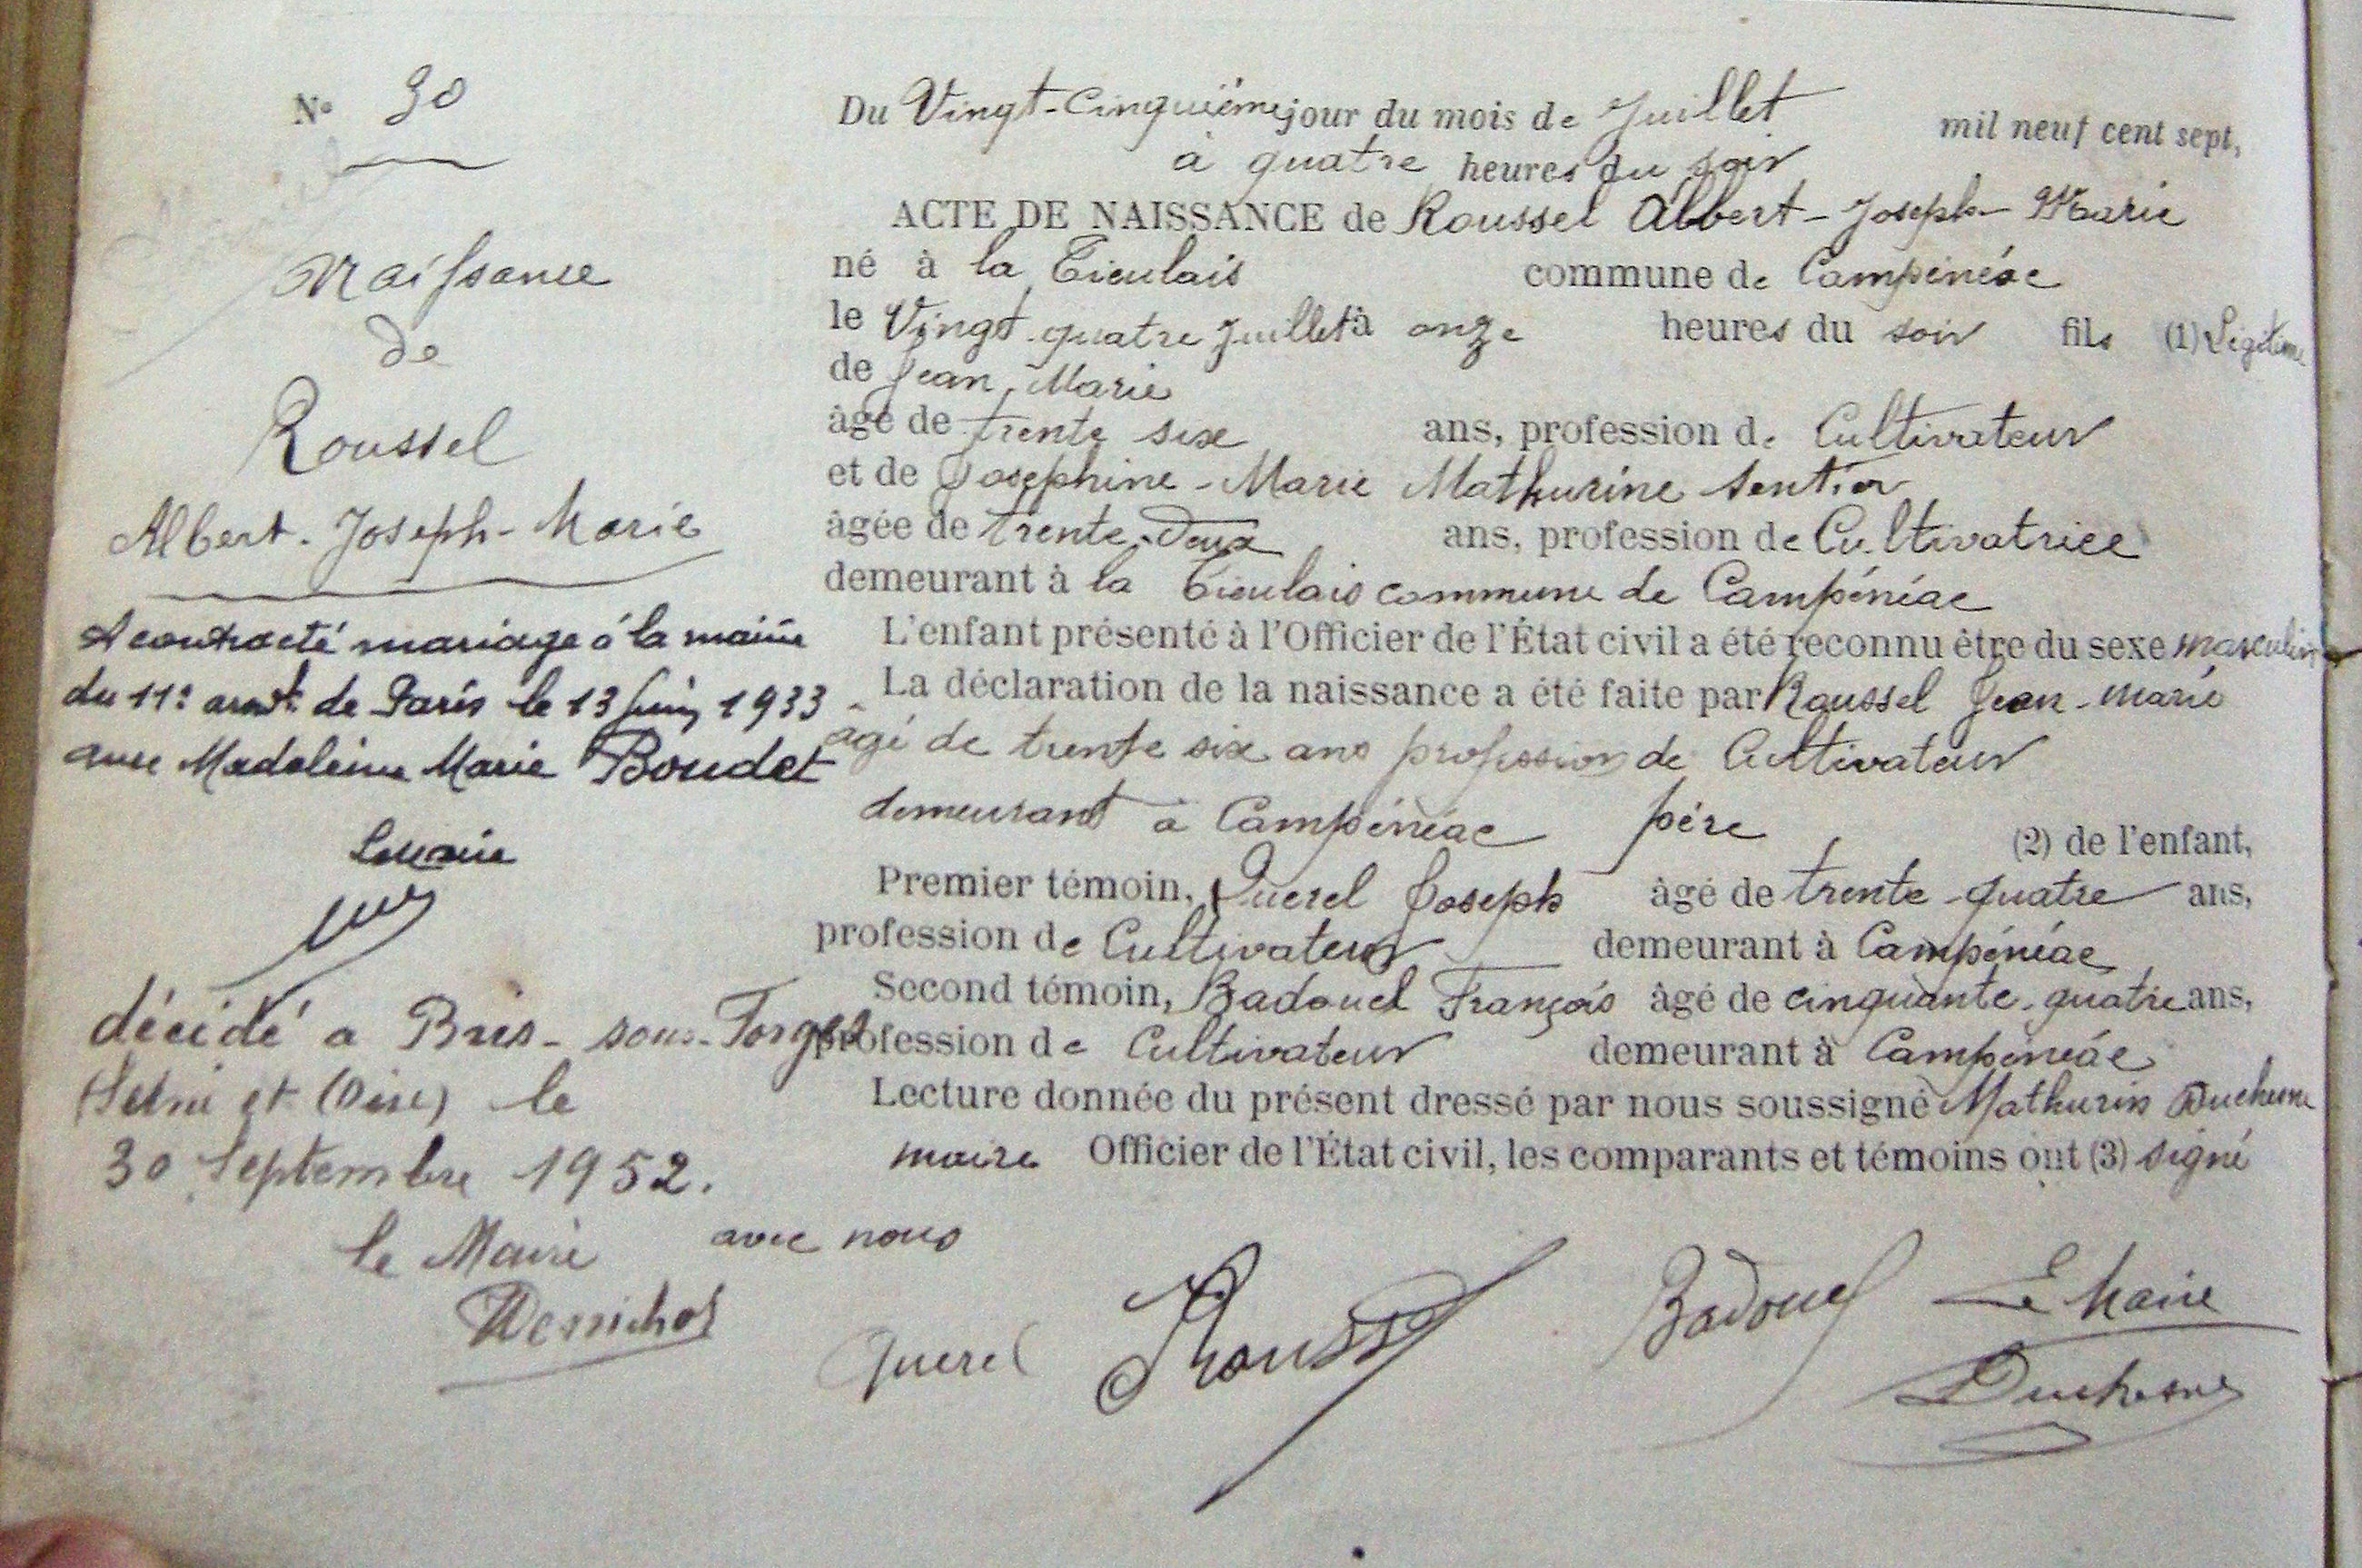 N° 30
Naissance
de
Roussel
Albert-Joseph-Marie
A contracté mariage à la mairie
du 11e arrdt de Paris le 13 Juin 1933
avec Madeleine Marie Boudet
Le Maire
décédé a Bris-sous-Forges
(Seine et Oise) le
30 Septembre 1952.
le Maire
Du Vingt-Cinquième jour du mois de Juillet mil neuf cent sept,
à quatre heures du soir
ACTE DE NAISSANCE de Roussel Albert-Joseph-Marie
né à la commune de Campénéac
le Vingt-quatre Juillet à onze heures du soir fils (1) Légitime
de Jean Marie
âgé de trente six ans, profession de Cultivateur
et de Josephine-Marie Mathurine Sentier
âgée de trente-deux ans, profession de Cultivatrice
demeurant à la commune de Campénéac
L'enfant présenté à l'Officier de l'État civil a été reconnu être du sexe masculin
La déclaration de la naissance a été faite par Roussel Jean-Marie
âgé de trente six ans profession de Cultivateur
demeurant à Campénéac père (2) de l'enfant,
Premier témoin, Querel Joseph âgé de trente-quatre ans,
profession de Cultivateur demeurant à Campénéac
Second témoin, Badouel François âgé de cinquante-quatre ans,
profession de Cultivateur demeurant à Campénéac
Lecture donnée du présent dressé par nous soussigné Mathurin Duchesne
maire Officier de l'État civil, les comparants et témoins ont (3) signé
avec nous
Querel Roussel Badouel Le Maire
Duchesne